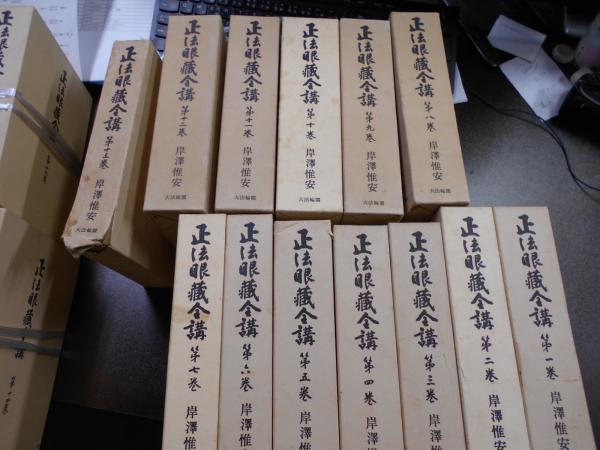 正法眼藏全講 第十三巻 岸澤惟安 大法輪閣
正法眼藏全講 第十二巻 岸澤惟安 大法輪閣
正法眼藏全講 第十一巻 岸澤惟安 大法輪閣
正法眼藏全講 第十巻 岸澤惟安 大法輪閣
正法眼藏全講 第九巻 岸澤惟安 大法輪閣
正法眼藏全講 第八巻 岸澤惟安 大法輪閣
正法眼藏全講 第七巻 岸澤惟
正法眼藏全講 第六巻 岸澤惟
正法眼藏全講 第五巻 岸澤
正法眼藏全講 第四巻 岸澤
正法眼藏全講 第三巻 岸澤惟
正法眼藏全講 第二巻 岸澤惟
正法眼藏全講 第一巻 岸澤惟
正法眼藏全
正法眼藏 講 第十四巻